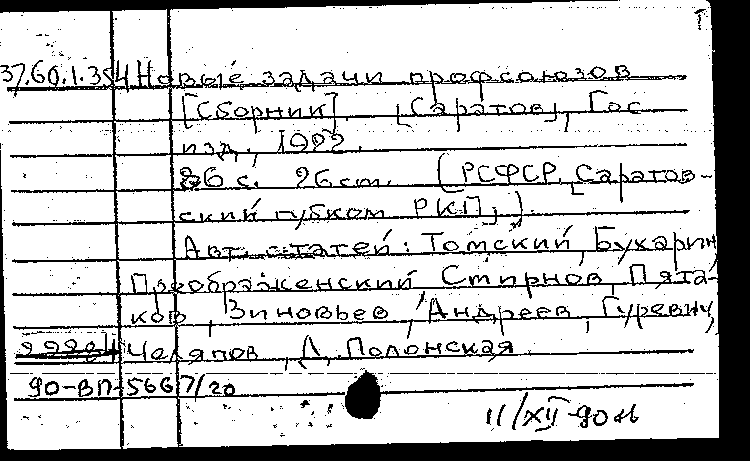 37.60.1.354 Новые задачи профсоюзов
[Сборник]. [Саратов], Гос
изд., 1922.
86 с. 26 см. (РСФСР. Саратов-
ский губком РКП).
Авт. статей: Томский, Бухарин,
Преображенский, Смирнов, Пята-
ков, Зиновьев, Андреев, Гуревич,
Челяпов, Д. Полонская
90-ВП-5667/20
11/XII-90